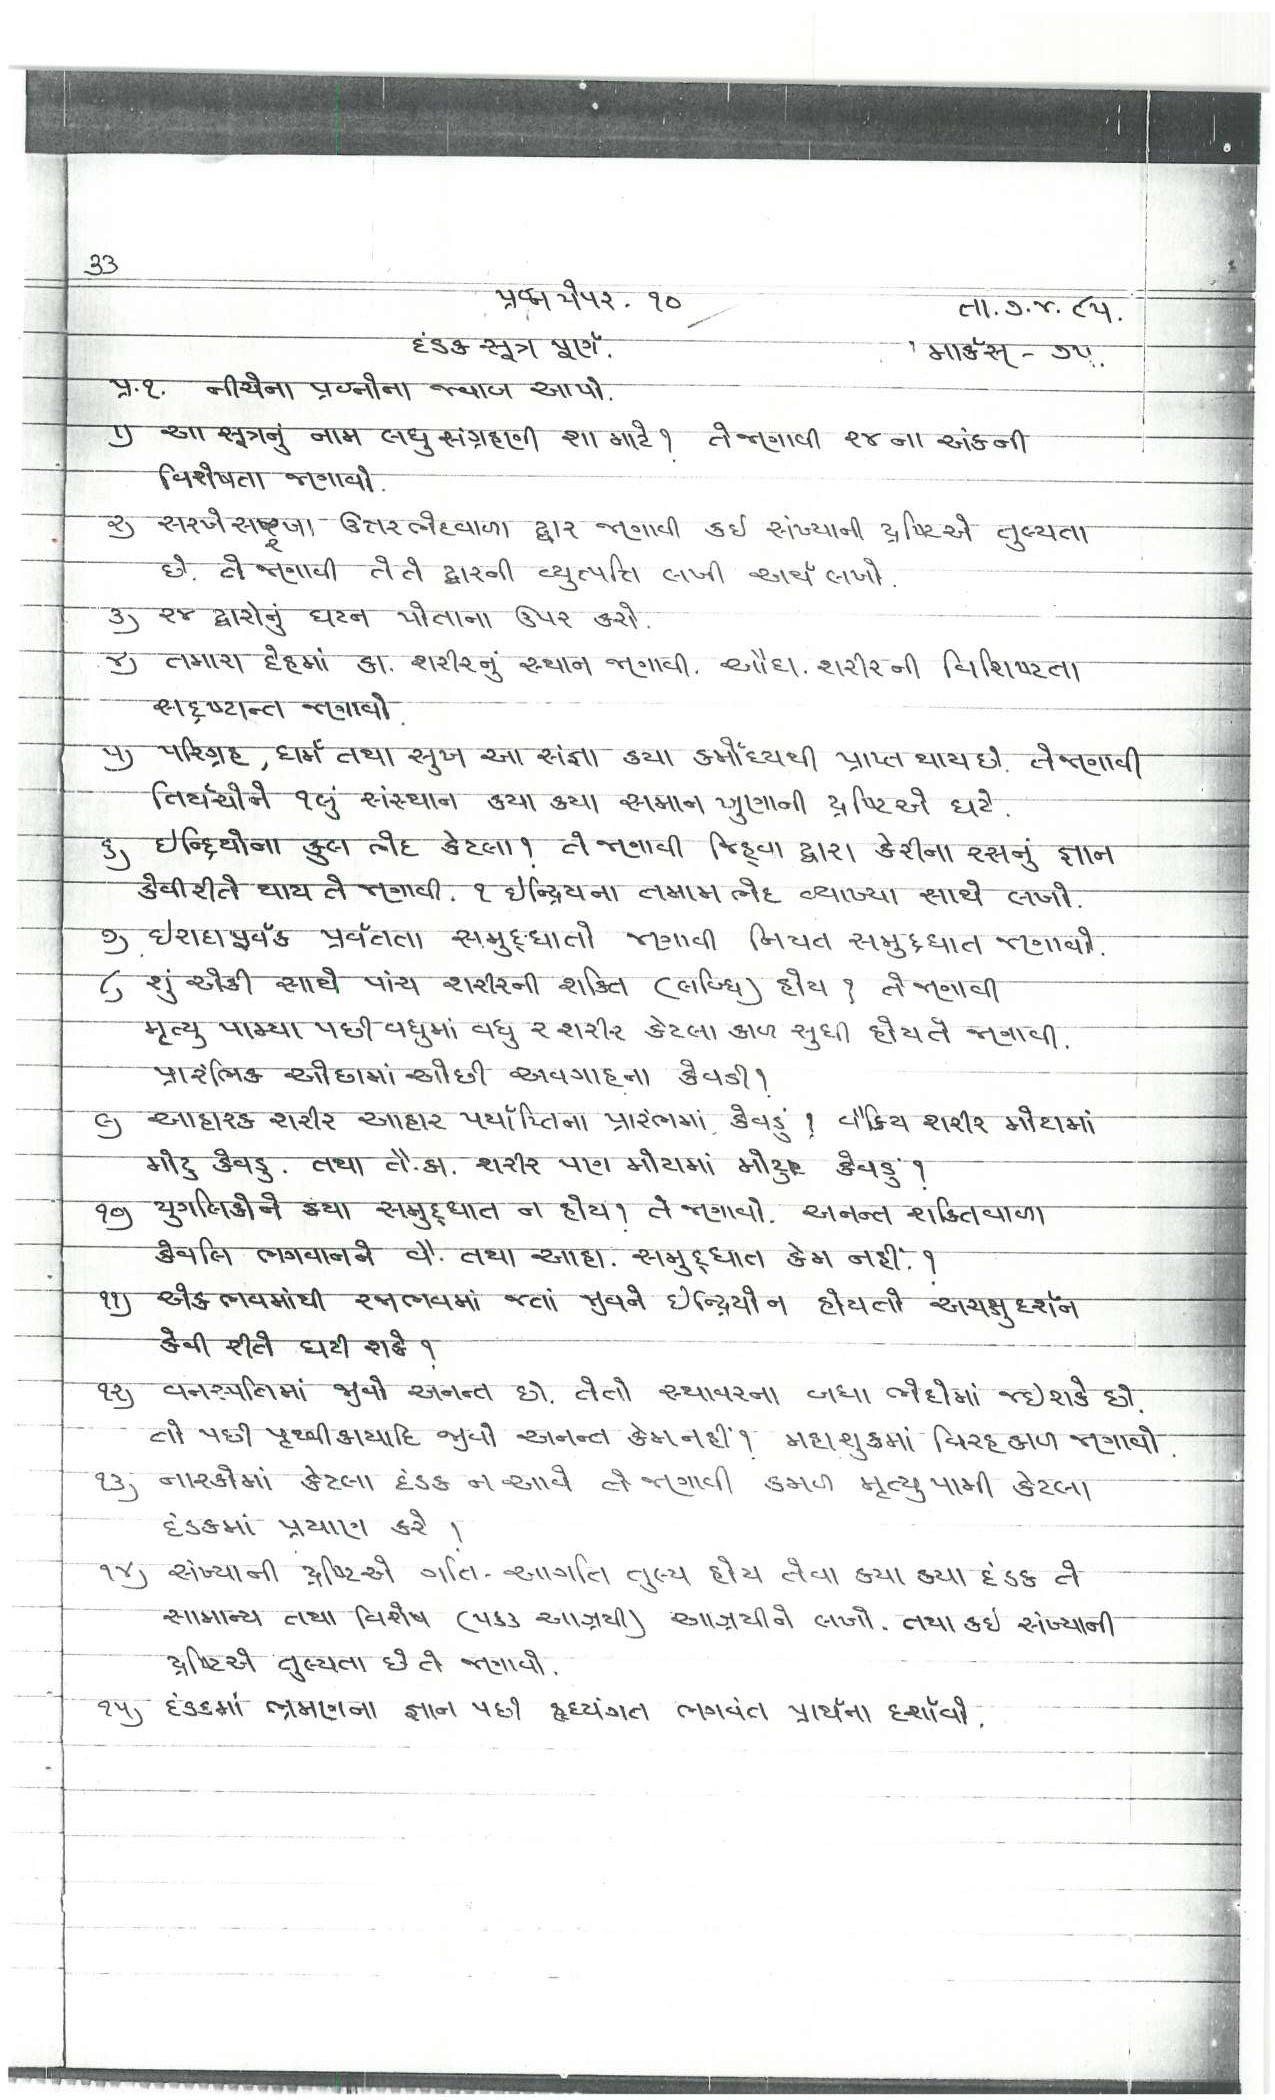 33
પ્રશ્ન પેપર. ૧૦
તા. ૭.૪.૮૫.
દંડક સૂત્ર પૂર્ણ.
માર્કસ્ - ૭૫.
પ્ર.૧. નીચેના પ્રશ્નોના જ્વાબ આપો.
૧) આ સૂત્રનું નામ લઘુ સંગ્રહણી શા માટે? તે જણાવી ૨૪ ના અંકની
વિશેષતા જણાવો.
૨) સરખે સરખા ઉત્તરભેદવાળા દ્વાર જણાવી કઈ સંખ્યાની દ્રષ્ટિએ તુલ્યતા
છે. તે જણાવી તે તે દ્વારની વ્યુત્પત્તિ લખી અર્થ લખો.
૩) ૨૪ દ્વારોનું ઘટન પોતાના ઉપર કરો.
૪) તમારા દેહમાં કા. શરીરનું સ્થાન જણાવી. ઔદા. શરીરની વિશિષ્ટતા
સદ્દષ્ટાન્ત જણાવો.
૫) પરિગ્રહ, ધર્મ તથા સુખ આ સંજ્ઞા કયા કર્મોદયથી પ્રાપ્ત થાય છે. તે જણાવી
તિર્યંચોને ૧લું સંસ્થાન કયા કયા સમાન ખુણાની દ્રષ્ટિએ ઘટે.
૬) ઇન્દ્રિયોના કુલ ભેદ કેટલા? તે જણાવી જિહ્વા દ્વારા કેરીના રસનું જ્ઞાન
કેવી રીતે થાય તે જણાવી. ૧ ઇન્દ્રિયના તમામ ભેદ વ્યાખ્યા સાથે લખો.
૭) ઇરાદાપૂર્વક પ્રર્વતતા સમુદ્ઘાતો જણાવી નિયત સમુદ્ઘાત જણાવો.
૮) શું એકી સાથે પાંચ શરીરની શક્તિ (લબ્ધિ) હોય? તે જણાવી
મૃત્યુ પામ્યા પછી વધુમાં વધુ ૨ શરીર કેટલા કાળ સુધી હોય તે જણાવી.
પ્રારંભિક ઓછામાં ઓછી અવગાહના કેવડી?
૯) આહારક શરીર આહાર પર્યાપ્તિના પ્રારંભમાં કેવડું? વૈક્રિય શરીર મોટામાં
મોટુ કેવડુ. તથા તૈ. કા. શરીર પણ મોટામાં મોટુ કેવડું?
૧૦) યુગલિકોને કયા સમુદ્ઘાત ન હોય? તે જણાવો. અનન્ત શક્તિવાળા
કેવલિ ભગવાનને વૈ. તથા આહા. સમુદ્ઘાત કેમ નહીં.?
૧૧) એક ભવમાંથી ૨જા ભવમાં જતાં જીવને ઇન્દ્રિયો ન હોય તો અચક્ષુ દર્શન
કેવી રીતે ઘટી શકે?
૧૨) વનસ્પતિમાં જીવો અનન્ત છે. તે તો સ્થાવરના બધા ભેદોમાં જઇ શકે છે.
તો પછી પૃથ્વીકાયાદિ જીવો અનન્ત કેમ નહીં? મહાશુક્રમાં વિરહ કાળ જણાવો.
૧૩) નારકોમાં કેટલા દંડક ન આવે તે જણાવી કમળ મૃત્યુ પામી કેટલા
દંડકમાં પ્રયાણ કરે?
૧૪) સંખ્યાની દ્રષ્ટિએ ગતિ - આગતિ તુલ્ય હોય તેવા કયા કયા દંડક તે
સામાન્ય તથા વિશેષ (૫૬૩ આશ્રયી) આશ્રયીને લખો. તથા કઇ સંખ્યાની
દ્રષ્ટિએ તુલ્યતા છે તે જણાવો.
૧૫) દંડકમાં ભ્રમણના જ્ઞાન પછી હૃદયંગત ભગવંત પ્રાર્થના દર્શાવો.